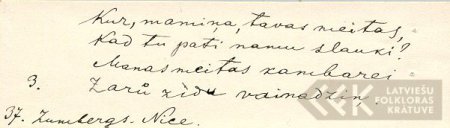 Kur, mamiņa, tavas meitas,
Kad tu pati namu slauki?
Manas meitas kambarei
3. Zarū zīdu vainadziņ,
37. Zumbergs. Nīcē.
LATVIEŠU
FOLKLORAS
KRĀTUVE